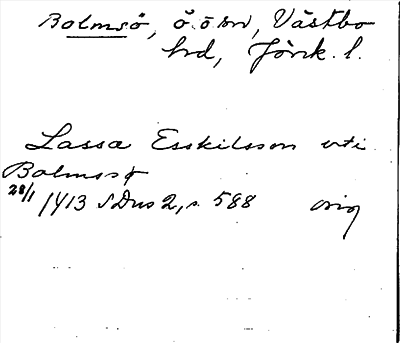 Bolmsö, ö. o. sn, Västbo
hrd, Jönk. l.
Lassa Esskilsson uti
Bolmssø
28/1 1413 SDns 2, s. 588 orig